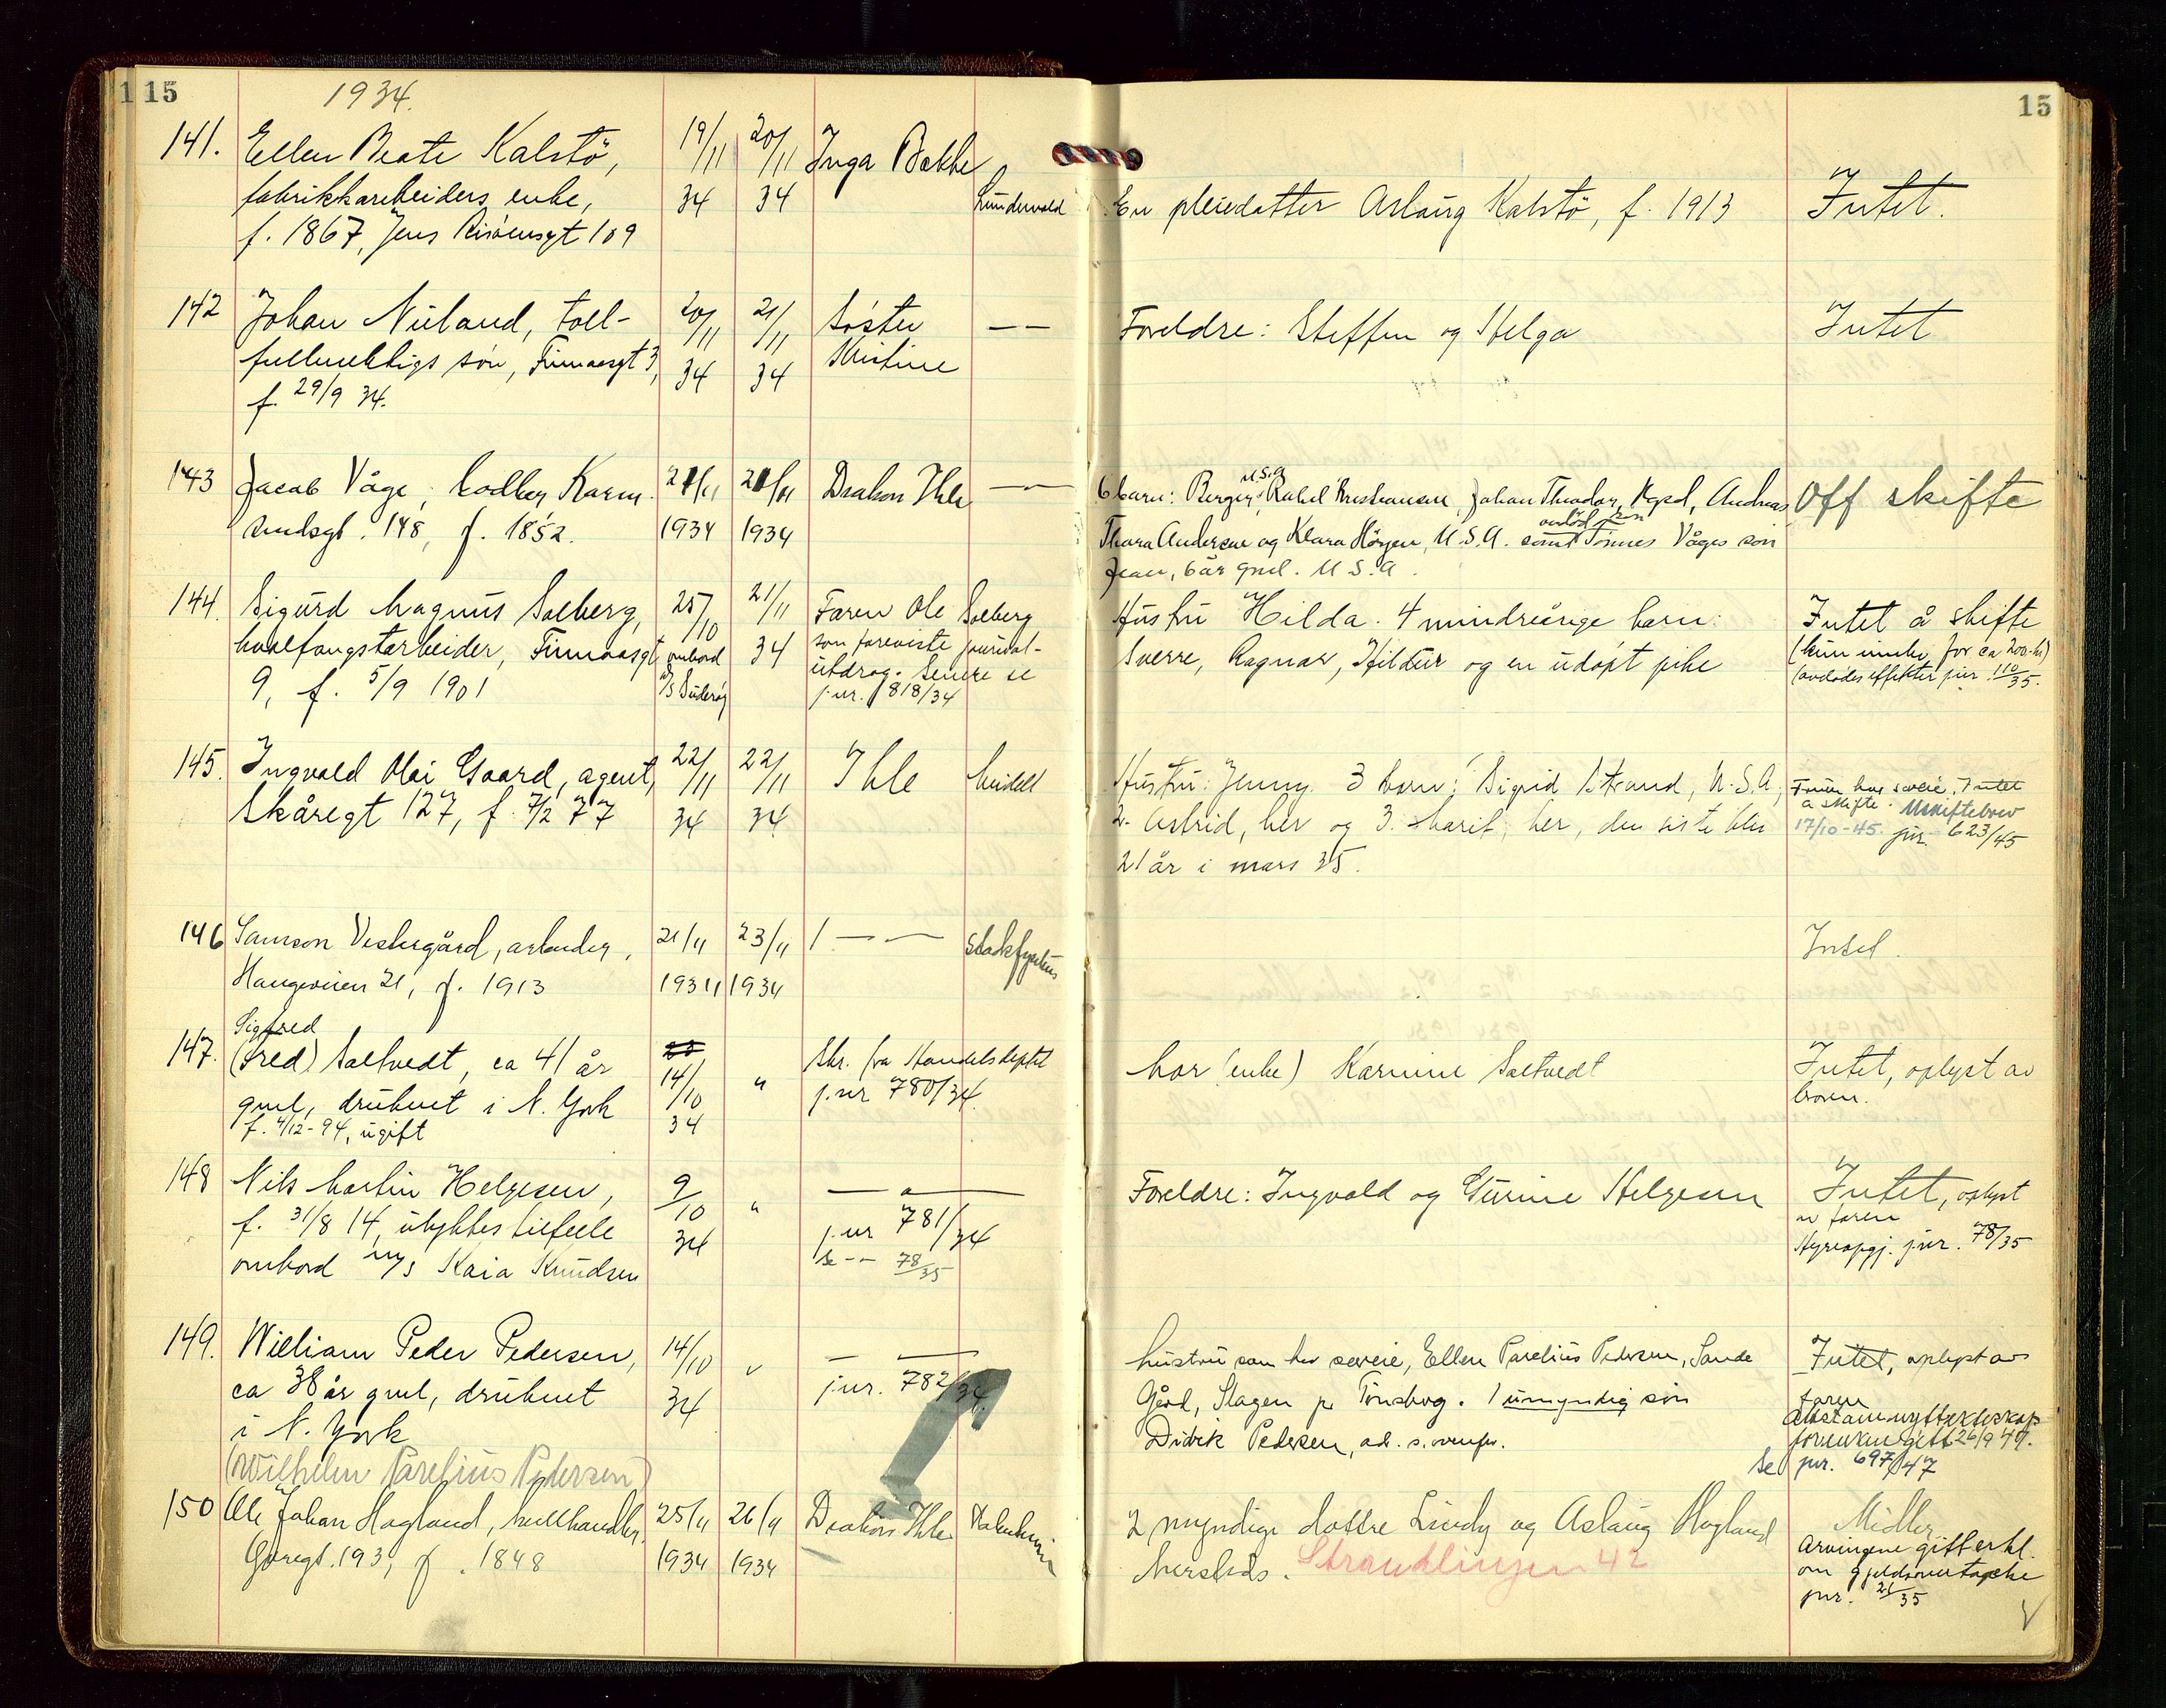 115
1934.
15
141. Ellen Beate Kalstö, 19/11 20/11 Inga Bakke
fabrikkarbeiders enke, 34 34 Lundevold
f. 1867, Jens Risöensgt 109
En pleiedatter Aslaug Kalstö, f. 1913 Intet.
142 Johan Nuland, toll- 20/11 21/11 Söster — —
fullmektigs sön, Finnaasgt 3, 34 34 Kristine
f. 29/9 34.
Foreldre: Steffen og Helga Intet
143 Jacob Våge, Karm. 21/11 21/11 Diakon Ihle — —
sundsgt. 148, f. 1852. 1934 1934
U.S.A
6 barn: Berger, Rakel Kristiansen, Johan Theodor, Kpsd, Andreas Off skifte
avdöd sön
Thora Andersen og Klara U.S.A. samt Tönnes Våges sön
Jean, 6 år gml. U S.A.
144. Sigurd Magnus Solberg, 25/10 21/11 Faren Ole Solberg
hvalfangstarbeider, Finnaasgt ombord 34 som foreviste journal-
9, f. 5/9 1901 utdrag. Senere se
jnr. 818/34
Hustru Hilda. 4 mindreårige barn: Intet å skifte
Sverre, Ragnar, Hildur og en udöpt pike for ca 200 kr)
(avdödes effekter jnr. 110/35.
145. Ingvald Olai Gaard, agent, 22/11 22/11 Ihle
Skåregt 127, f. 7/2 77 34 34
Hustru: Jenny. 3 barn: Sigrid Strand, U.S.A, Fruen har særeie. Intet
2. Astrid, her og 3. Marit, her, den siste blir å skifte. Uskiftebrev
21 år i mars 35. 17/10-45. jnr. 623/45
146 Samson Vestergård, arbeider, 21/11 23/11 — —
Haugeveien 21, f. 1913 1934 1934
Intet.
Sigfred
147. (Fred) Saltvedt, ca 41 år 14/10 " Skr. fra Handelsdeptet
gml, druknet i N. York 34 jnr 780/34.
f. 4/12-94, ugift
Mor (enke) Karnine Saltvedt Intet, oplyst av
moren.
148 Nils Martin Helgesen, 9/10 " — " —
f. 31/8 14, ulykkestilfelle 34 jnr 781/34
ombord M/S Kaia Knudsen Se -- 78/35
Foreldre: Ingvald og Gurine Helgesen Intet, oplyst
av faren
Hyreopgj. jnr. 78/35
149. William Peder Pedersen, 14/10 — —
ca 38 år gml, druknet 34 jnr. 782/34.
i N. York
(Wilhelm Parelius Pedersen)
hustru som har særeie, Ellen Parelius Pedersen, Sande Intet, oplyst av
Gård, Slagen pr Tönsberg. 1 umyndig sön faren
Didrik Pedersen, ad. s. ovenfor.
26/9 47.
Se jnr. 697/47
150 Ole Johan Hagland, 25/11 26/11 Diakon Ihle
Göregt. 193, f. 1848 1934 1934
2 myndige döttre Lindy og Aslaug Hagland Midler
Strandlinjen 42 Arvingene gitt erkl.
om gjeldsovertagelse
jnr. 21/35